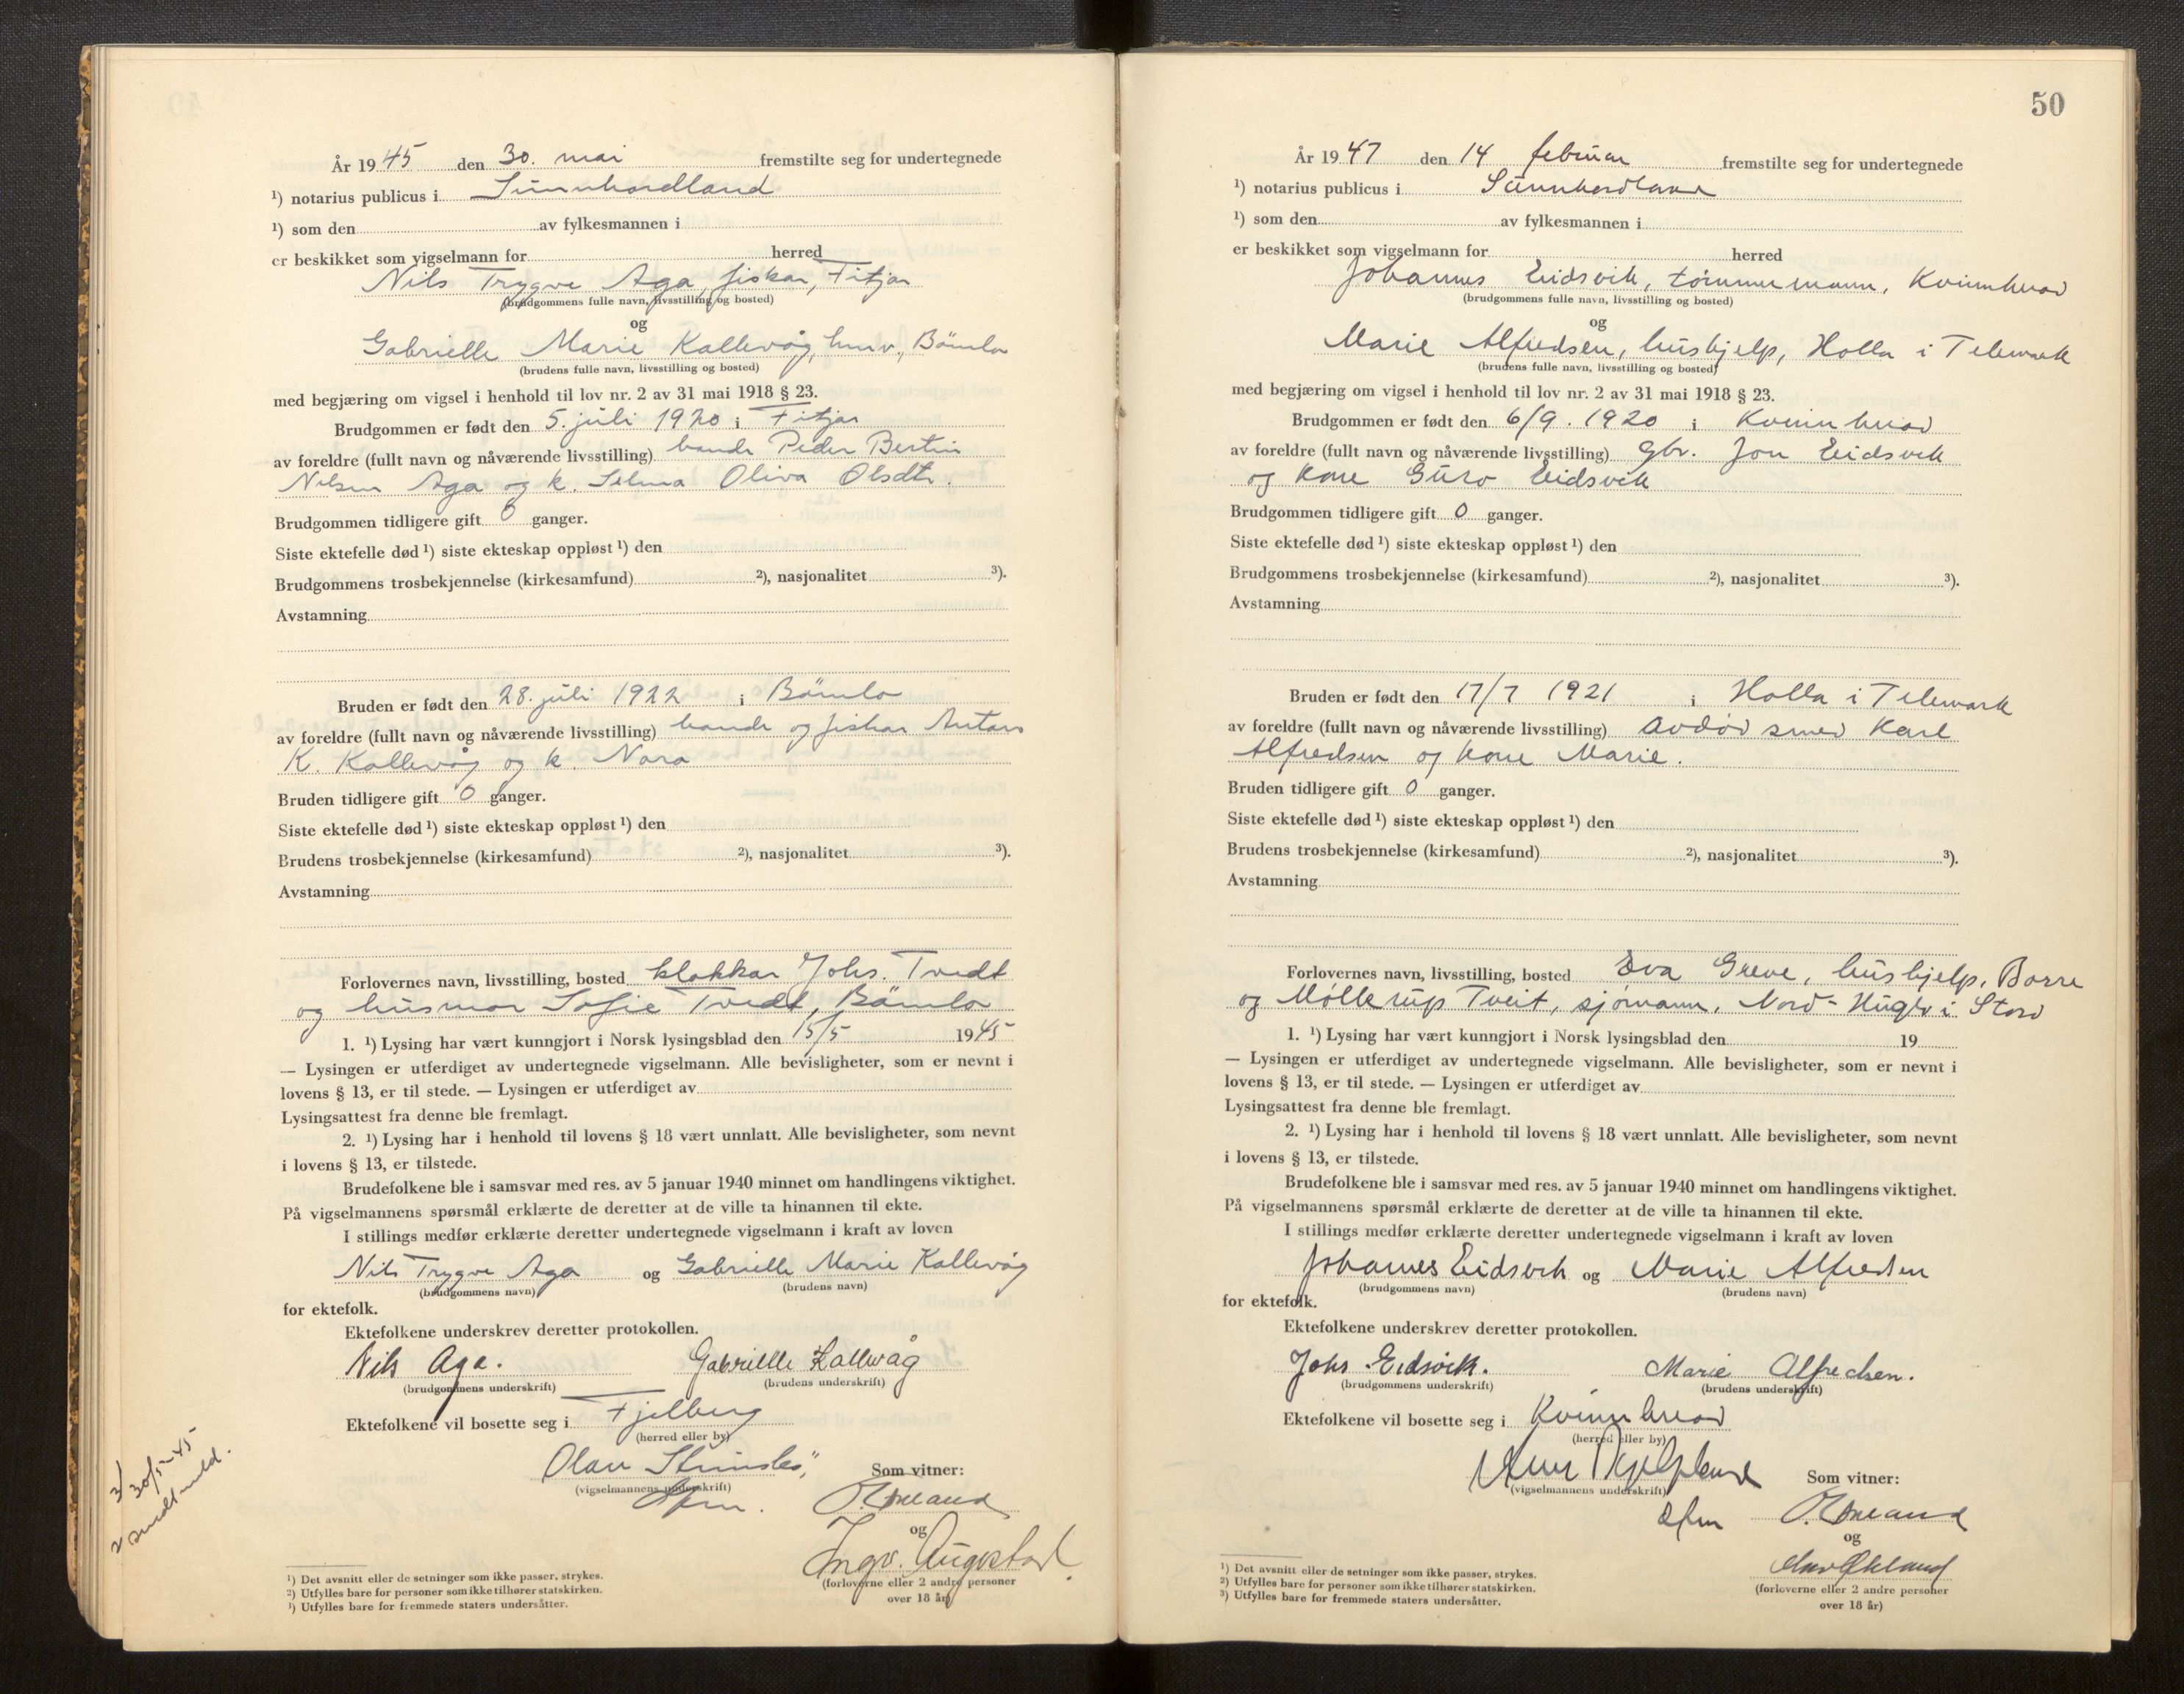 År 1945 den 30. mai fremstilte seg for undertegnede
¹) notarius publicus i Sunnhordland
¹) som den av fylkesmannen i
er beskikket som vigselmann for herred
Nils Trygve Aga, fiskar, Fitjar
(brudgommens fulle navn, livsstilling og bosted)
og
Gabrielle Marie Kallevåg, husv., Bömlo
(brudens fulle navn, livsstilling og bosted)
med begjæring om vigsel i henhold til lov nr. 2 av 31 mai 1918 § 23.
Brudgommen er født den 5. juli 1920 i Fitjar
av foreldre (fullt navn og nåværende livsstilling) bonde Peder Bertin
Nilsen Aga og k. Selma Oliva Olsdtr.
Brudgommen tidligere gift 0 ganger.
Siste ektefelle død ¹) siste ekteskap oppløst ¹) den
Brudgommens trosbekjennelse (kirkesamfund) ²), nasjonalitet ³).
Avstamning
Bruden er født den 28. juli 1922 i Bömlo
av foreldre (fullt navn og nåværende livsstilling) bonde og fiskar Antons
K. Kallevåg og k. Nora
Bruden tidligere gift 0 ganger.
Siste ektefelle død ¹) siste ekteskap oppløst ¹) den
Brudens trosbekjennelse (kirkesamfund) ²), nasjonalitet ³).
Avstamning
Forlovernes navn, livsstilling, bosted klokkar Johs. Tvedt
og husmor Sofie Tvedt, Bömlo
1. ¹) Lysing har vært kunngjort i Norsk lysingsblad den 15/5 1945
— Lysingen er utferdiget av undertegnede vigselmann. Alle bevisligheter, som er nevnt i
lovens § 13, er til stede. — Lysingen er utferdiget av
Lysingsattest fra denne ble fremlagt.
2. ¹) Lysing har i henhold til lovens § 18 vært unnlatt. Alle bevisligheter, som nevnt
i lovens § 13, er tilstede.
Brudefolkene ble i samsvar med res. av 5 januar 1940 minnet om handlingens viktighet.
På vigselmannens spørsmål erklærte de deretter at de ville ta hinannen til ekte.
I stillings medfør erklærte deretter undertegnede vigselmann i kraft av loven
Nils Trygve Aga og Gabrielle Marie Kallevåg
(brudgommens navn) (brudens navn)
for ektefolk.
Ektefolkene underskrev deretter protokollen.
Nils Aga. Gabrielle Kallevåg
(brudgommens underskrift) (brudens underskrift)
Ektefolkene vil bosette seg i Fjelberg
(herred eller by)
Olav Som vitner:
(vigselmannens underskrift)
og
Ingv.
(forloverne eller 2 andre personer
over 18 år)
30/5-45
2 sendt meld.
¹) Det avsnitt eller de setninger som ikke passer, strykes.
²) Utfylles bare for personer som ikke tilhører statskirken.
¹) Utfylles bare for fremmede staters undersåtter.
50
År 1947 den 14 februar fremstilte seg for undertegnede
¹) notarius publicus i Sunnhordland
¹) som den av fylkesmannen i
er beskikket som vigselmann for herred
Johannes Eidsvik, tømmermann, Kvinnherad
(brudgommens fulle navn, livsstilling og bosted)
og
Marie Alfredsen, hushjelp, Holla i Telemark
(brudens fulle navn, livsstilling og bosted)
med begjæring om vigsel i henhold til lov nr. 2 av 31 mai 1918 § 23.
Brudgommen er født den 6/9. 1920 i Kvinnherad
av foreldre (fullt navn og nåværende livsstilling) gbr. Jon Eidsvik
og kone Guro Eidsvik
Brudgommen tidligere gift 0 ganger.
Siste ektefelle død ¹) siste ekteskap oppløst ¹) den
Brudgommens trosbekjennelse (kirkesamfund) ²), nasjonalitet ³).
Avstamning
Bruden er født den 17/7 1921 i Holla i Telemark
av foreldre (fullt navn og nåværende livsstilling) avdød smed Karl
Alfredsen og kone Marie.
Bruden tidligere gift 0 ganger.
Siste ektefelle død ¹) siste ekteskap oppløst ¹) den
Brudens trosbekjennelse (kirkesamfund) ²), nasjonalitet ³).
Avstamning
Forlovernes navn, livsstilling, bosted Eva Greve, hushjelp, Borre
og Møllerup Tveit, sjømann, Nord-Huglo i Stord
1. ¹) Lysing har vært kunngjort i Norsk lysingsblad den 19
— Lysingen er utferdiget av undertegnede vigselmann. Alle bevisligheter, som er nevnt i
lovens § 13, er til stede. — Lysingen er utferdiget av
Lysingsattest fra denne ble fremlagt.
2. ¹) Lysing har i henhold til lovens § 18 vært unnlatt. Alle bevisligheter, som nevnt
i lovens § 13, er tilstede.
Brudefolkene ble i samsvar med res. av 5 januar 1940 minnet om handlingens viktighet.
På vigselmannens spørsmål erklærte de deretter at de ville ta hinannen til ekte.
I stillings medfør erklærte deretter undertegnede vigselmann i kraft av loven
Johannes Eidsvik og Marie Alfredsen
(brudgommens navn) (brudens navn)
for ektefolk.
Ektefolkene underskrev deretter protokollen.
Johs Eidsvik. Marie Alfredsen.
(brudgommens underskrift) (brudens underskrift)
Ektefolkene vil bosette seg i Kvinnherad
(herred eller by)
Som vitner:
(vigselmannens underskrift)
og
(forloverne eller 2 andre personer
over 18 år)
¹) Det avsnitt eller de setninger som ikke passer, strykes.
²) Utfylles bare for personer som ikke tilhører statskirken.
³) Utfylles bare for fremmede staters undersåtter.